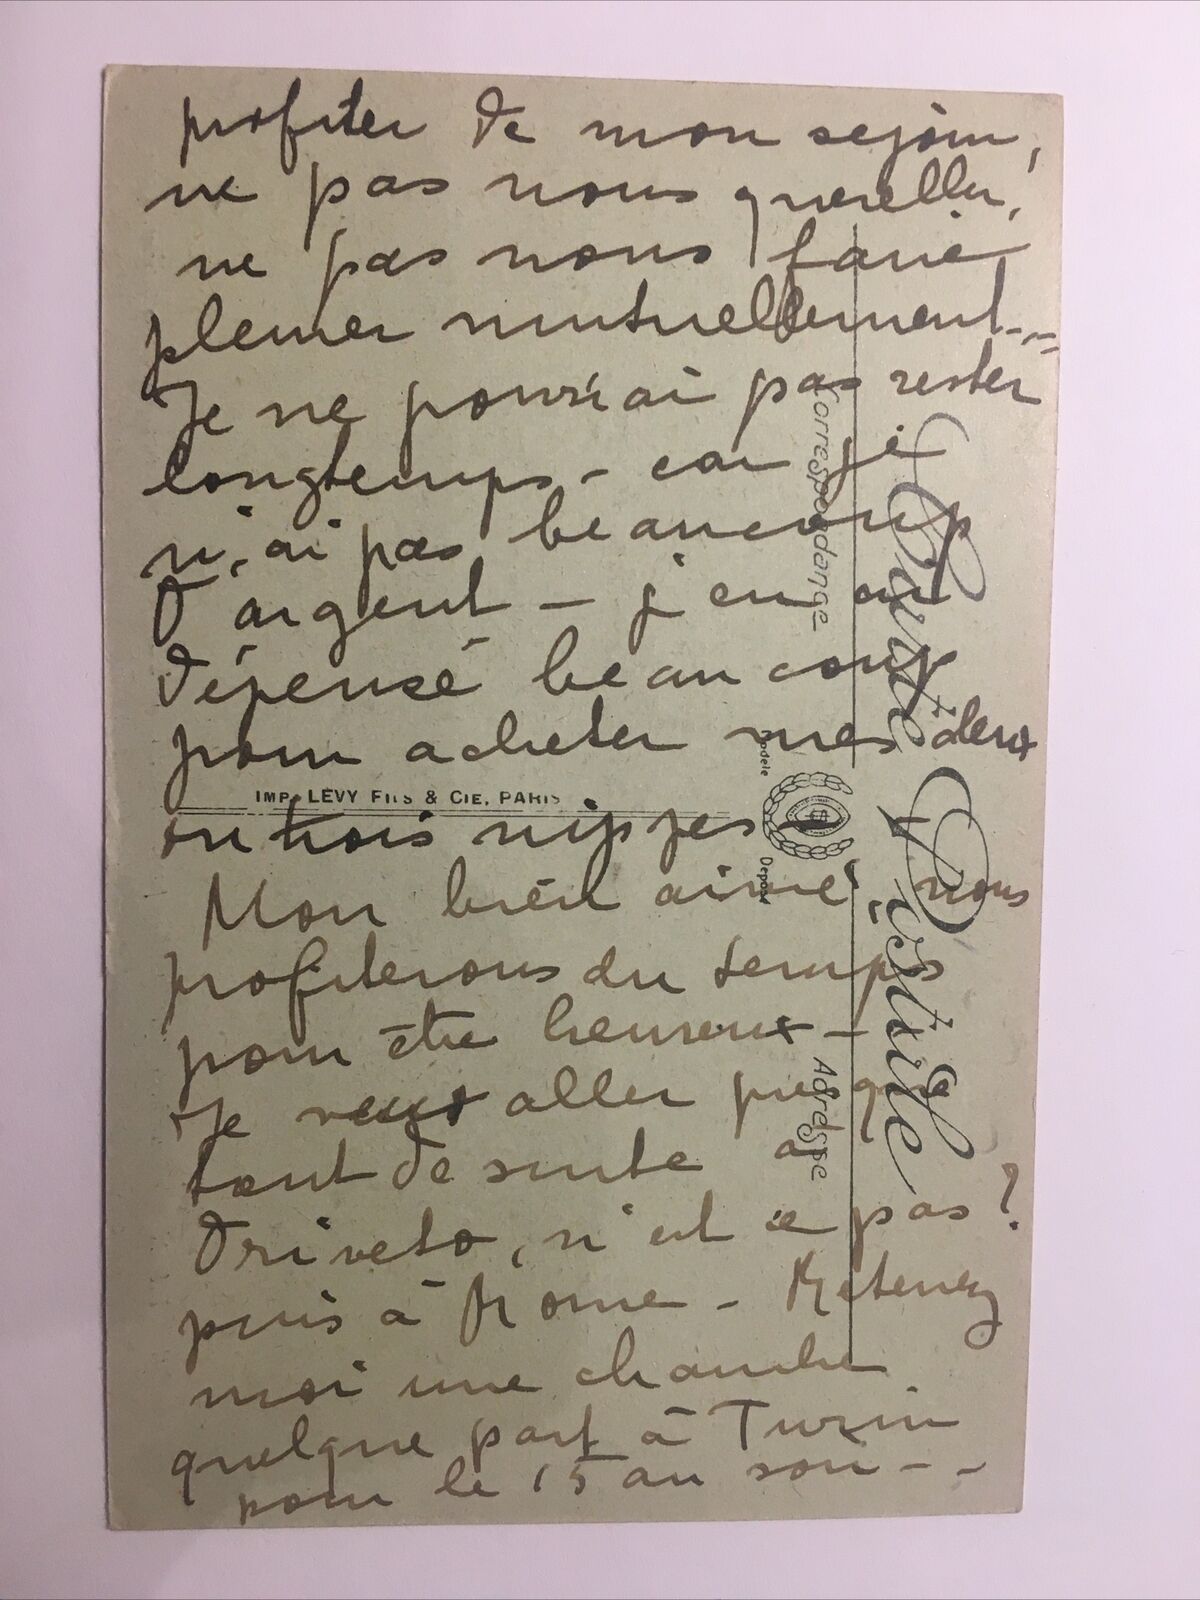 profiter de mon sejour,
ne pas nous quereller,
ne pas nous faire
pleurer mutuellement...
Je ne pourrai pas rester
longtemps - car je
n'ai pas beaucoup
d'argent - j'en ai
dépensé beaucoup
pour acheter mes deux
ou trois nippes -
Mon bien aimé, nous
profiterons du temps
pour être heureux -
Je veux aller presque
tout de suite à
Oriveto, n'est ce pas?
puis à Rome - Retenez
moi une chambre
quelque part à Turin
pour le 15 au soir - -
Carte Postale
Correspondance
Adresse
Modèle
Déposé
IMP. LÉVY FILS & CIE, PARIS